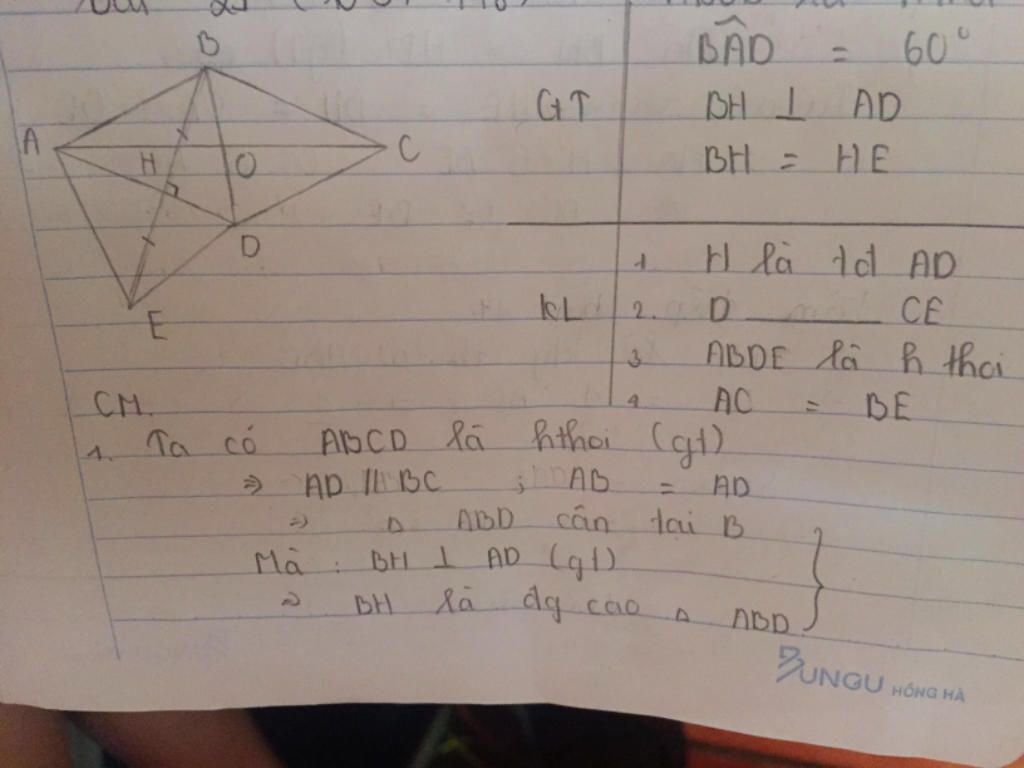 B
A
H
O
C
D
E
BAD = 60°
GT
BH ⊥ AD
BH = HE
1. H là tđ AD
KL
2. D ______ CE
3 ABDE là h thoi
4 AC = BE
CM.
1. Ta có ABCD là hthoi (gt)
=> AD // BC ; AB = AD
=> Δ ABD cân tại B
Mà : BH ⊥ AD (gt)
=> BH là đg cao Δ ABD
BUNGU HỒNG HÀ